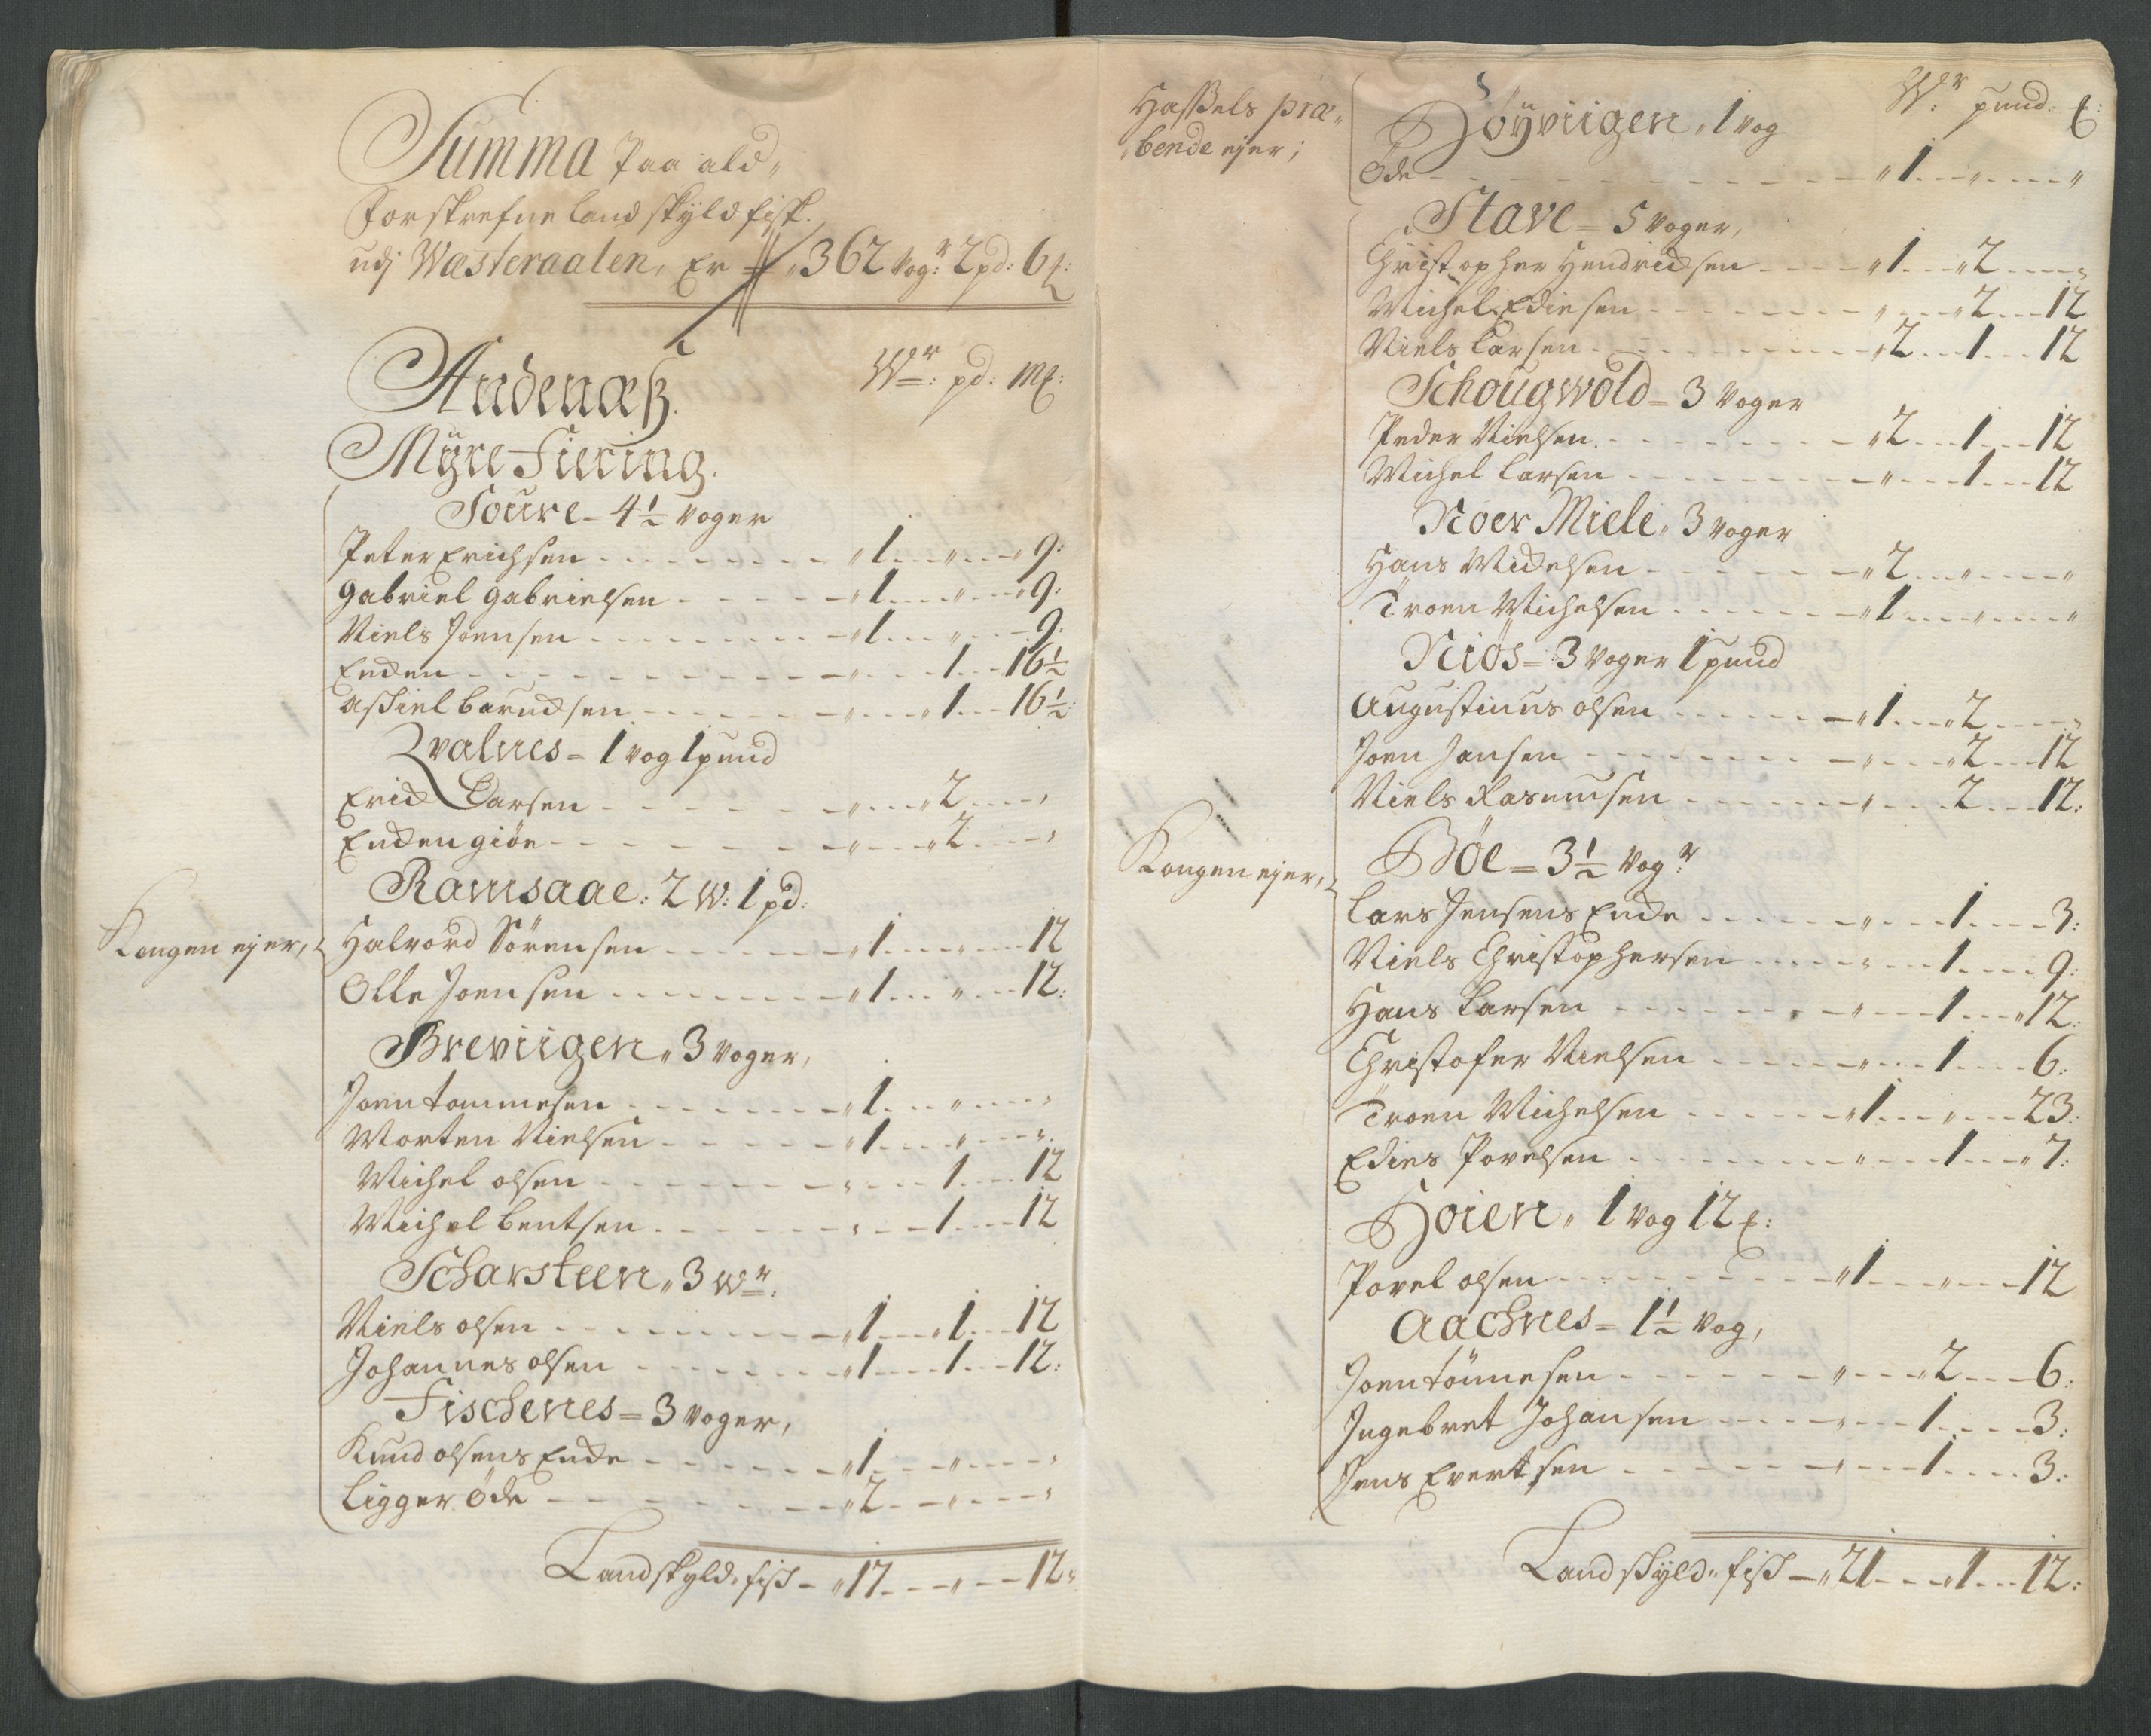 Summa Paa ald„
Forskrefne Landskyld fisk
udj Wæsteraalen, Er „362 Vog:r 2 pd: 6 ℔:
Andenæs.
W:r pd: m℔:
Myre Fiering.
Soure – 4½ Voger
Peter Erichsen „1 „ 9:
Gabriel Gabrielsen „1 „ „9:
Niels Joensen „1 „ 9:
Encken „ 1 16½
Assiel Barucksen „ „1 16½:
Qvalnes = 1 Vog 1 pund
Erick Larsen „ „2 „
Encken giøe „ „2 „
Ramsaae: 2 W: 1 pd:
Kongen ejer,
Halvord Sørensen „1 „ 12
Olle Joensen „1 „ 12:
Breviigen „ 3 Voger,
Joen tommesen „1 „ „
Morten Nielsen „1 „ „
Michel olsen „ 1 12
Michel bentsen „ 1 12
Scharsteen „ 3 W:r
Niels olsen „1 „1 12
Johannes olsen „1 1 12:
Fischenes = 3 Voger,
Knud olsens Encke „1 „ „
Ligger øde „2 „ „
Landskyld„ fisk „17 „ 12„
Hassels præ„
„bende ejer;
Höyviigen „ 1 Vog
W:r pund: ℔:
Øde „1 „ „
Stave = 5 Voger,
Christopher Hendricksen „1 „2 „
Michel Ediesen „ „2 12
Niels Larsen „2 1 12
Schougwold = 3 Voger
Peder Nielsen „2 1 12
Michel Larsen „ 1 12
Noer Miele „ 3 Voger
Hans Mickelsen „2 „ „
Troen Michelsen „1 „ „
Niøs = 3 Voger 1 pund
Augustinus olsen „1 „2 „
Joen Jansen „ „2 12
Niels Rasmusen „ 2 12:
Kongen ejer,
Bøe = 3½ Vog:r
Lars Jensens Encke „ 1 3:
Niels Christophersen „ 1 9:
Hans Larsen „ 1 „12:
Christofer Nielsen „ 1 6:
Troen Michelsen „1 „ 23:
Edies Povelsen „ 1 „7:
Hoien „ 1 Vog 12 ℔:
Povel olsen „1 „ 12
Aachnes = 1½ Vog,
Joen tönnesen „ „2 6:
Ingebret Johansen „ 1 3:
Jens Evertsen „ 1 3:
Landskyld„ fisk „21 „1 12: